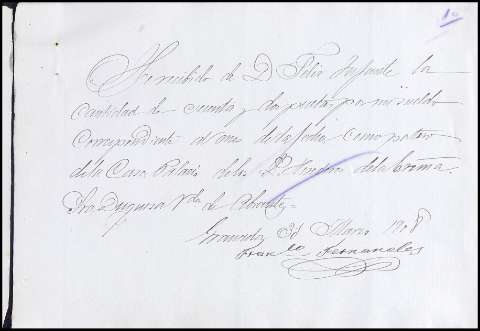 10
He recibido de D. Felix Infante la
cantidad de cuenta y dos pesetas por mi sueldo
correspondiente al mes de la fecha como portero
de la Casa Palacio de los de la Exma.
Sra Duquesa Vda de Abrantes
Granada 31 Marzo 1908
Franco Fernandes